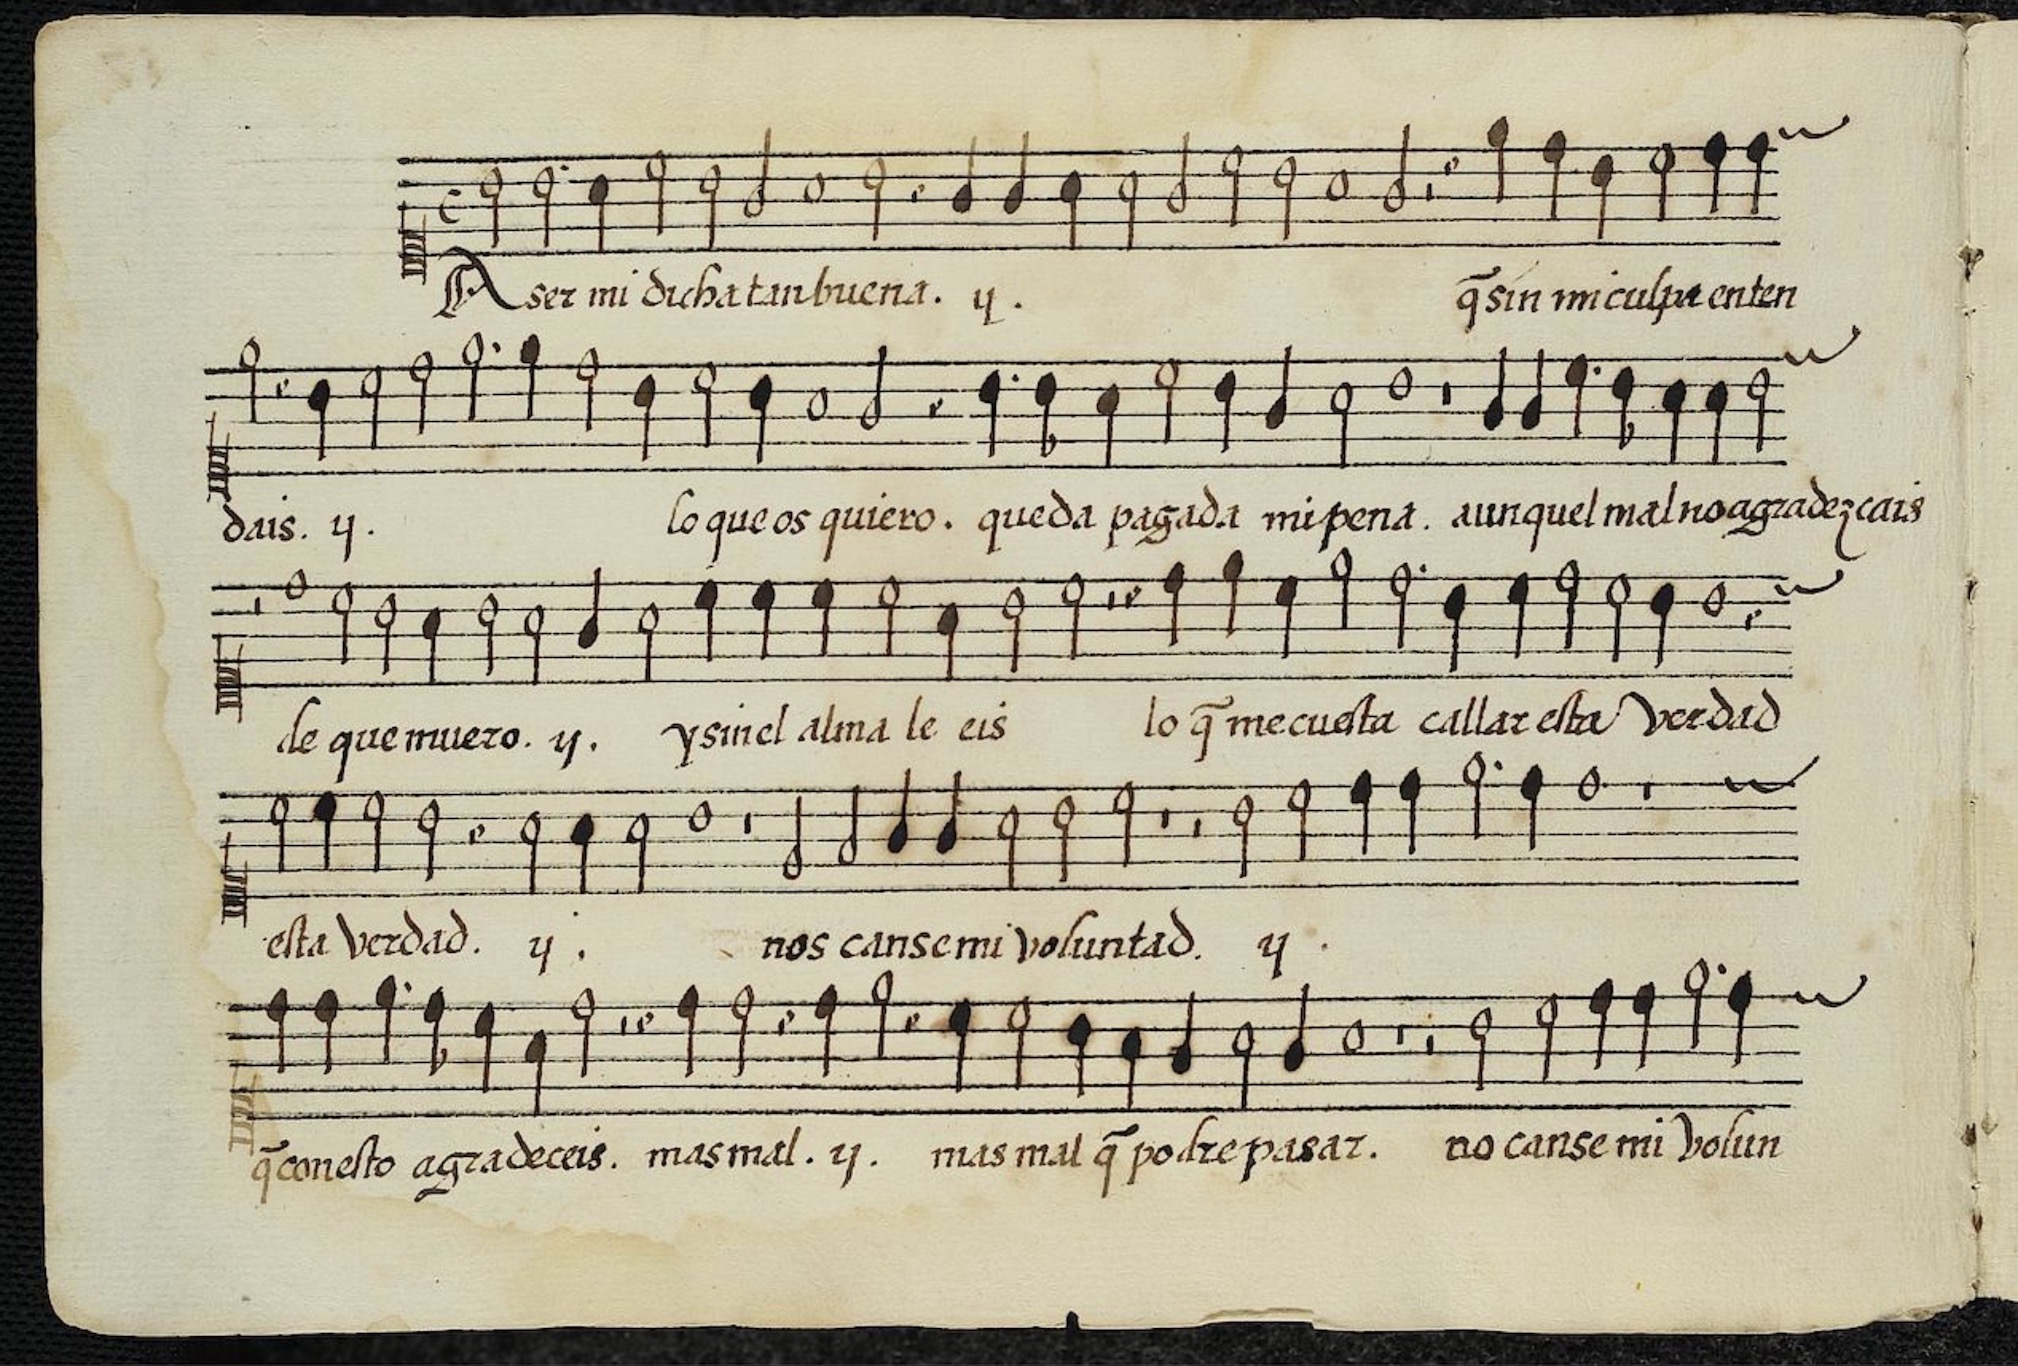 A ser mi dicha tan buena. ij. q̃ sin mi culpa enten
dais. ij. lo que os quiero. queda pagada mi pena. aunquel mal no agradezcais
de que muero. ij. y sin el alma le eis lo q̃ me cuesta callar esta verdad
esta verdad. ij. nos canse mi voluntad. ij.
q̃ con esto agradeceis. mas mal. ij. mas mal q̃ podre pasar. no canse mi volun